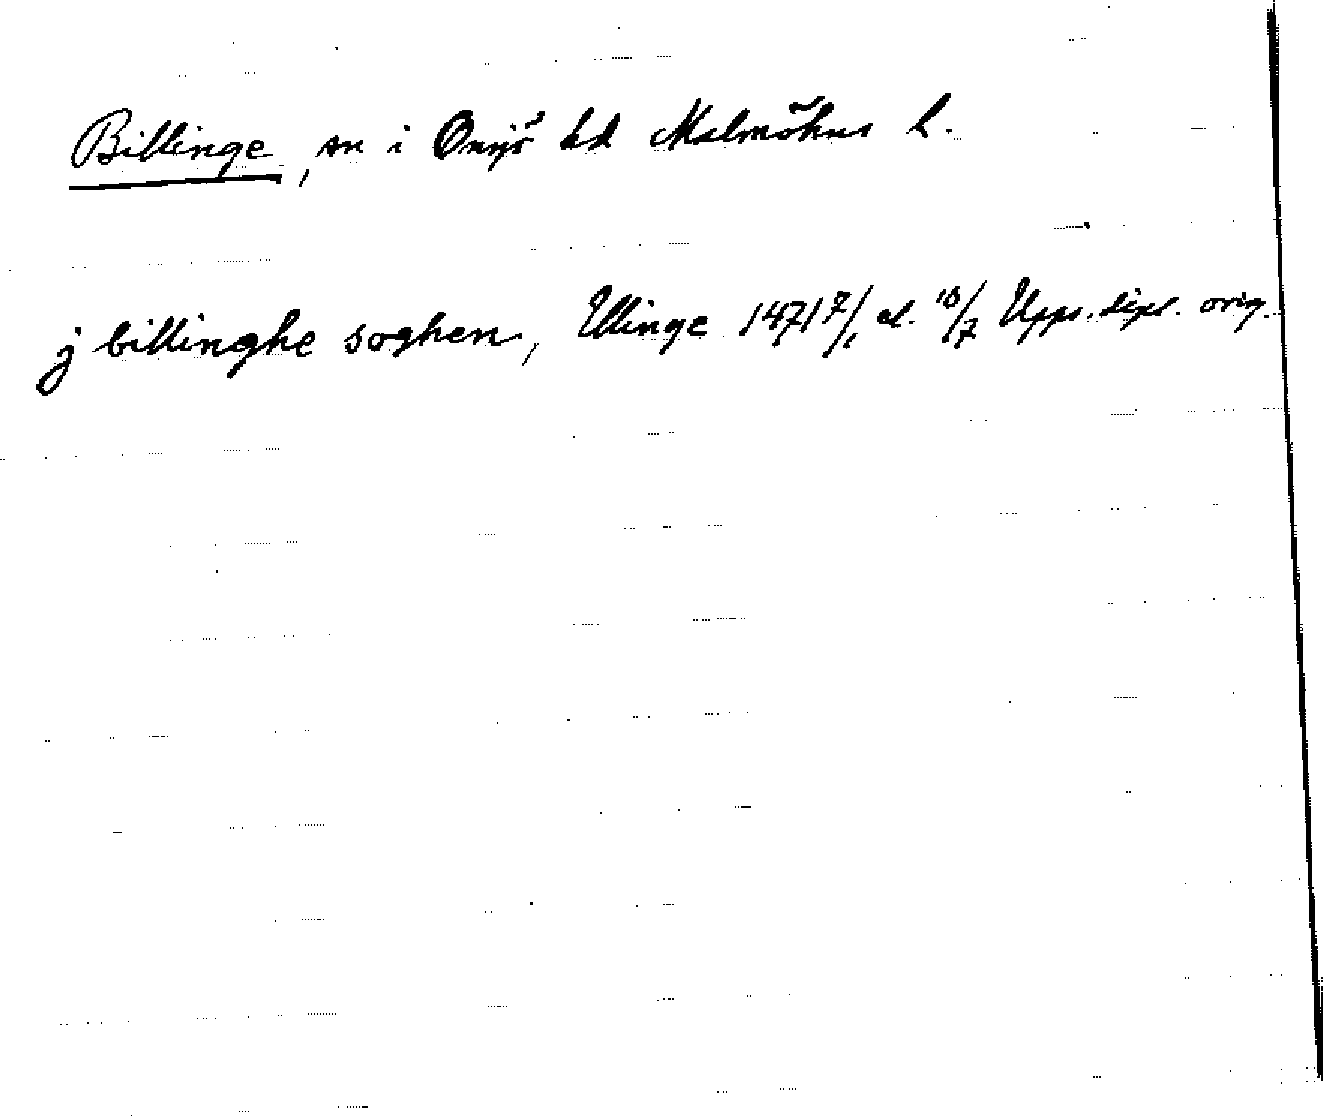 Billinge, sn i Onsjö hd Malmöhus l.
j billinghe soghen, Ellinge 1471 7/1 el. 10/7 Upps. dipl. orig.